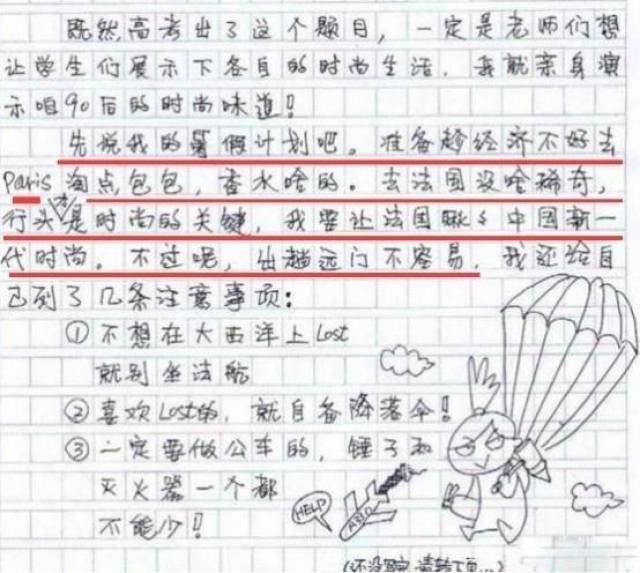 既然高考出了这个题目，一定是老师们想
让学生们展示下各自的时尚生活，我就亲身演
示咱90后的时尚味道！
先说我的暑假计划吧。准备趁经济不好去
Paris淘点包包，香水啥的。去法国没啥稀奇，
行头才是时尚的关键，我要让法国瞅瞅中国新一
代时尚。不过呢，出趟远门不容易，我还给自
己列了几条注意事项：
①不想在大西洋上Lost
就别坐法航
②喜欢Lost的，就自备降落伞！
③一定要做公车的，锤子和
灭火器一个都
不能少！
HELP
(还没写完,请转下页...)